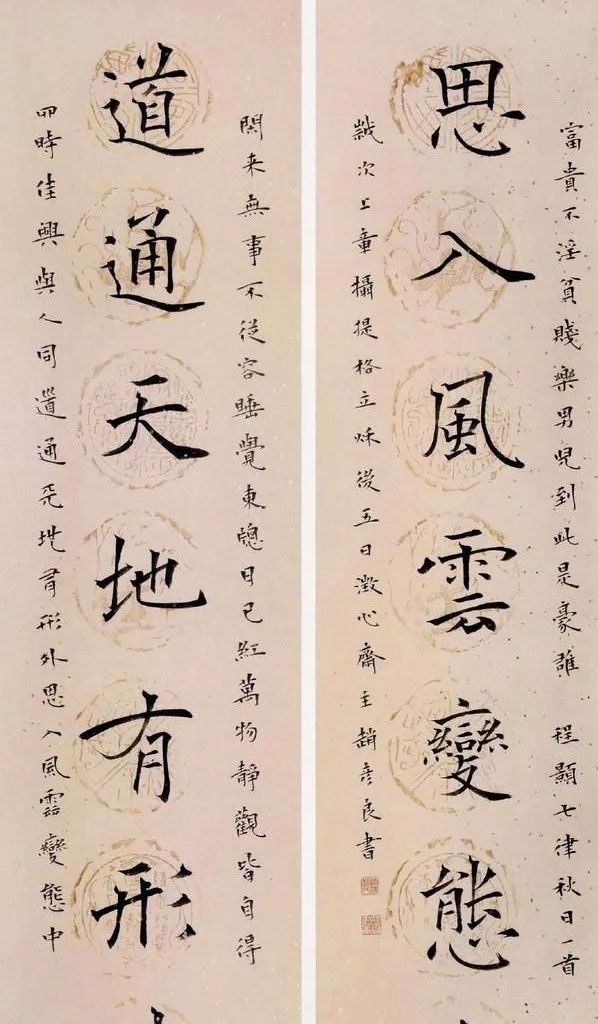 閑来無事不從容睡覺東牕日已紅萬物靜觀皆自得
道通天地有形
四時佳興與人同道通天地有形外思入風雲變態中
富貴不淫貧賤樂男兒到此是豪雄 程顥七律秋日一首
思入風雲變態
歲次上章攝提格立秋後五日澂心齋主趙彥良書